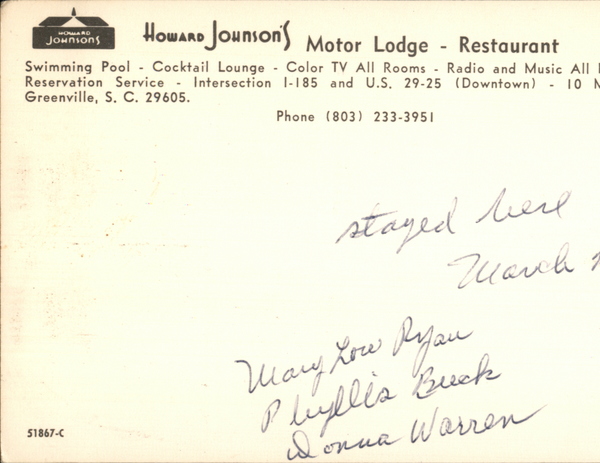 HOWARD
JOHNSON'S
HOWARD JOHNSON'S Motor Lodge - Restaurant
Swimming Pool - Cocktail Lounge - Color TV All Rooms - Radio and Music All
Reservation Service - Intersection I-185 and U.S. 29-25 (Downtown) - 10
Greenville, S. C. 29605.
Phone (803) 233-3951
stayed here
March
Mary Lou Ryan
Phyllis Buck
Donna Warren
51867-C